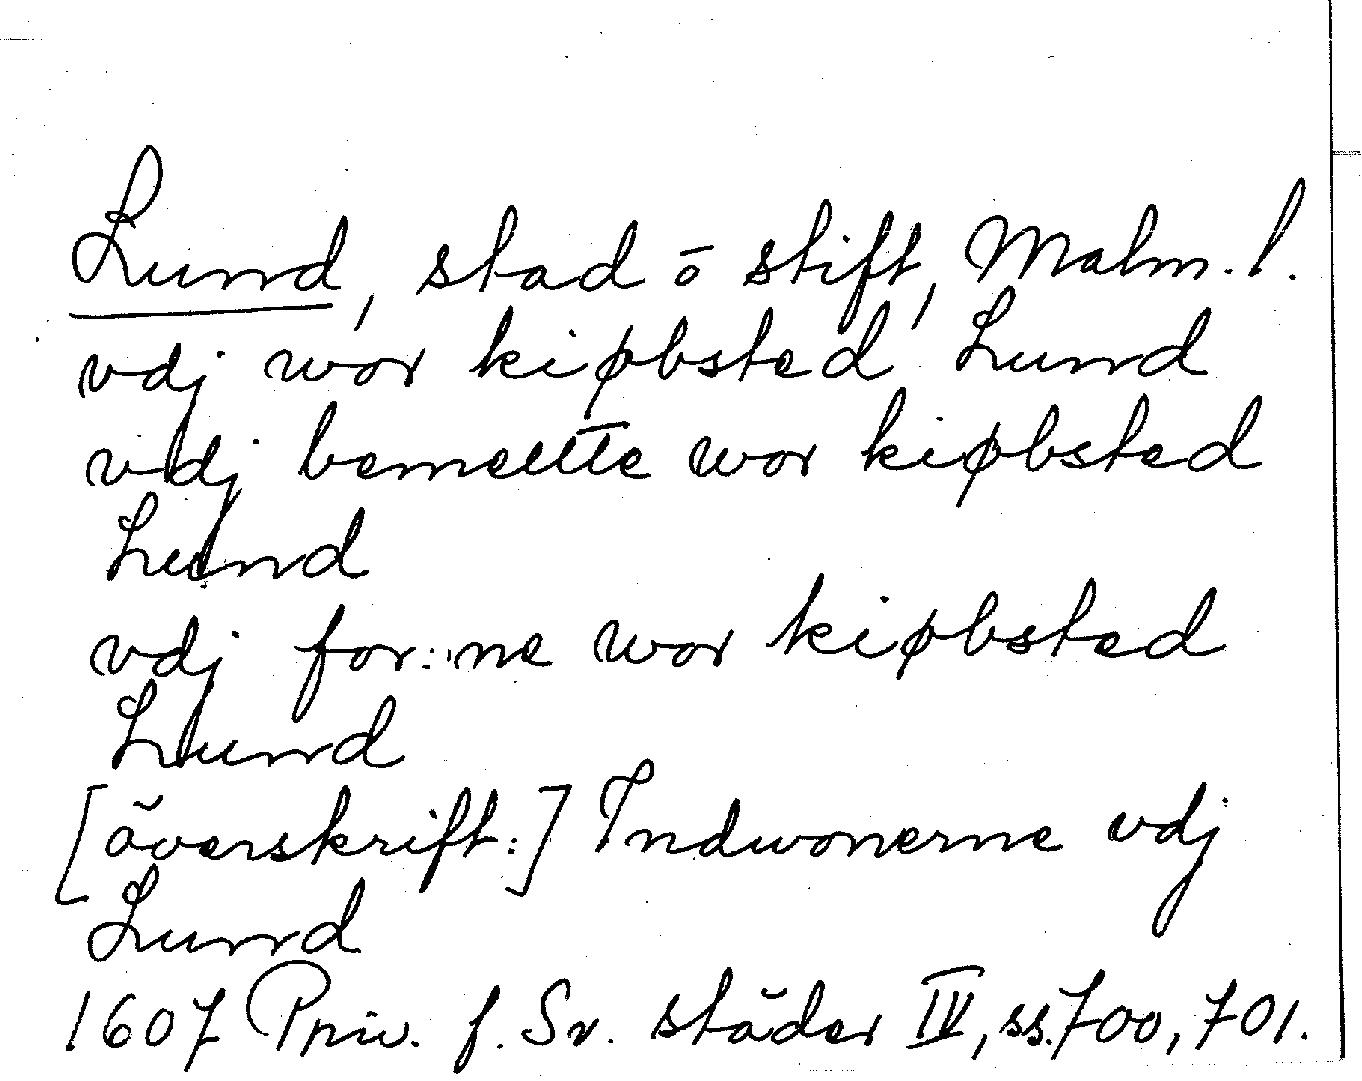 Lund, stad o stift, Malm. l.
vdj wor kiøbsted Lund
vdj bemeelte wor kiøbsted
Lund
vdj for:ne wor kiøbsted
Lund
[överskrift:] Indwonerne vdj
Lund
1607 Priv. f. Sv. städer IV, ss. 700, 701.